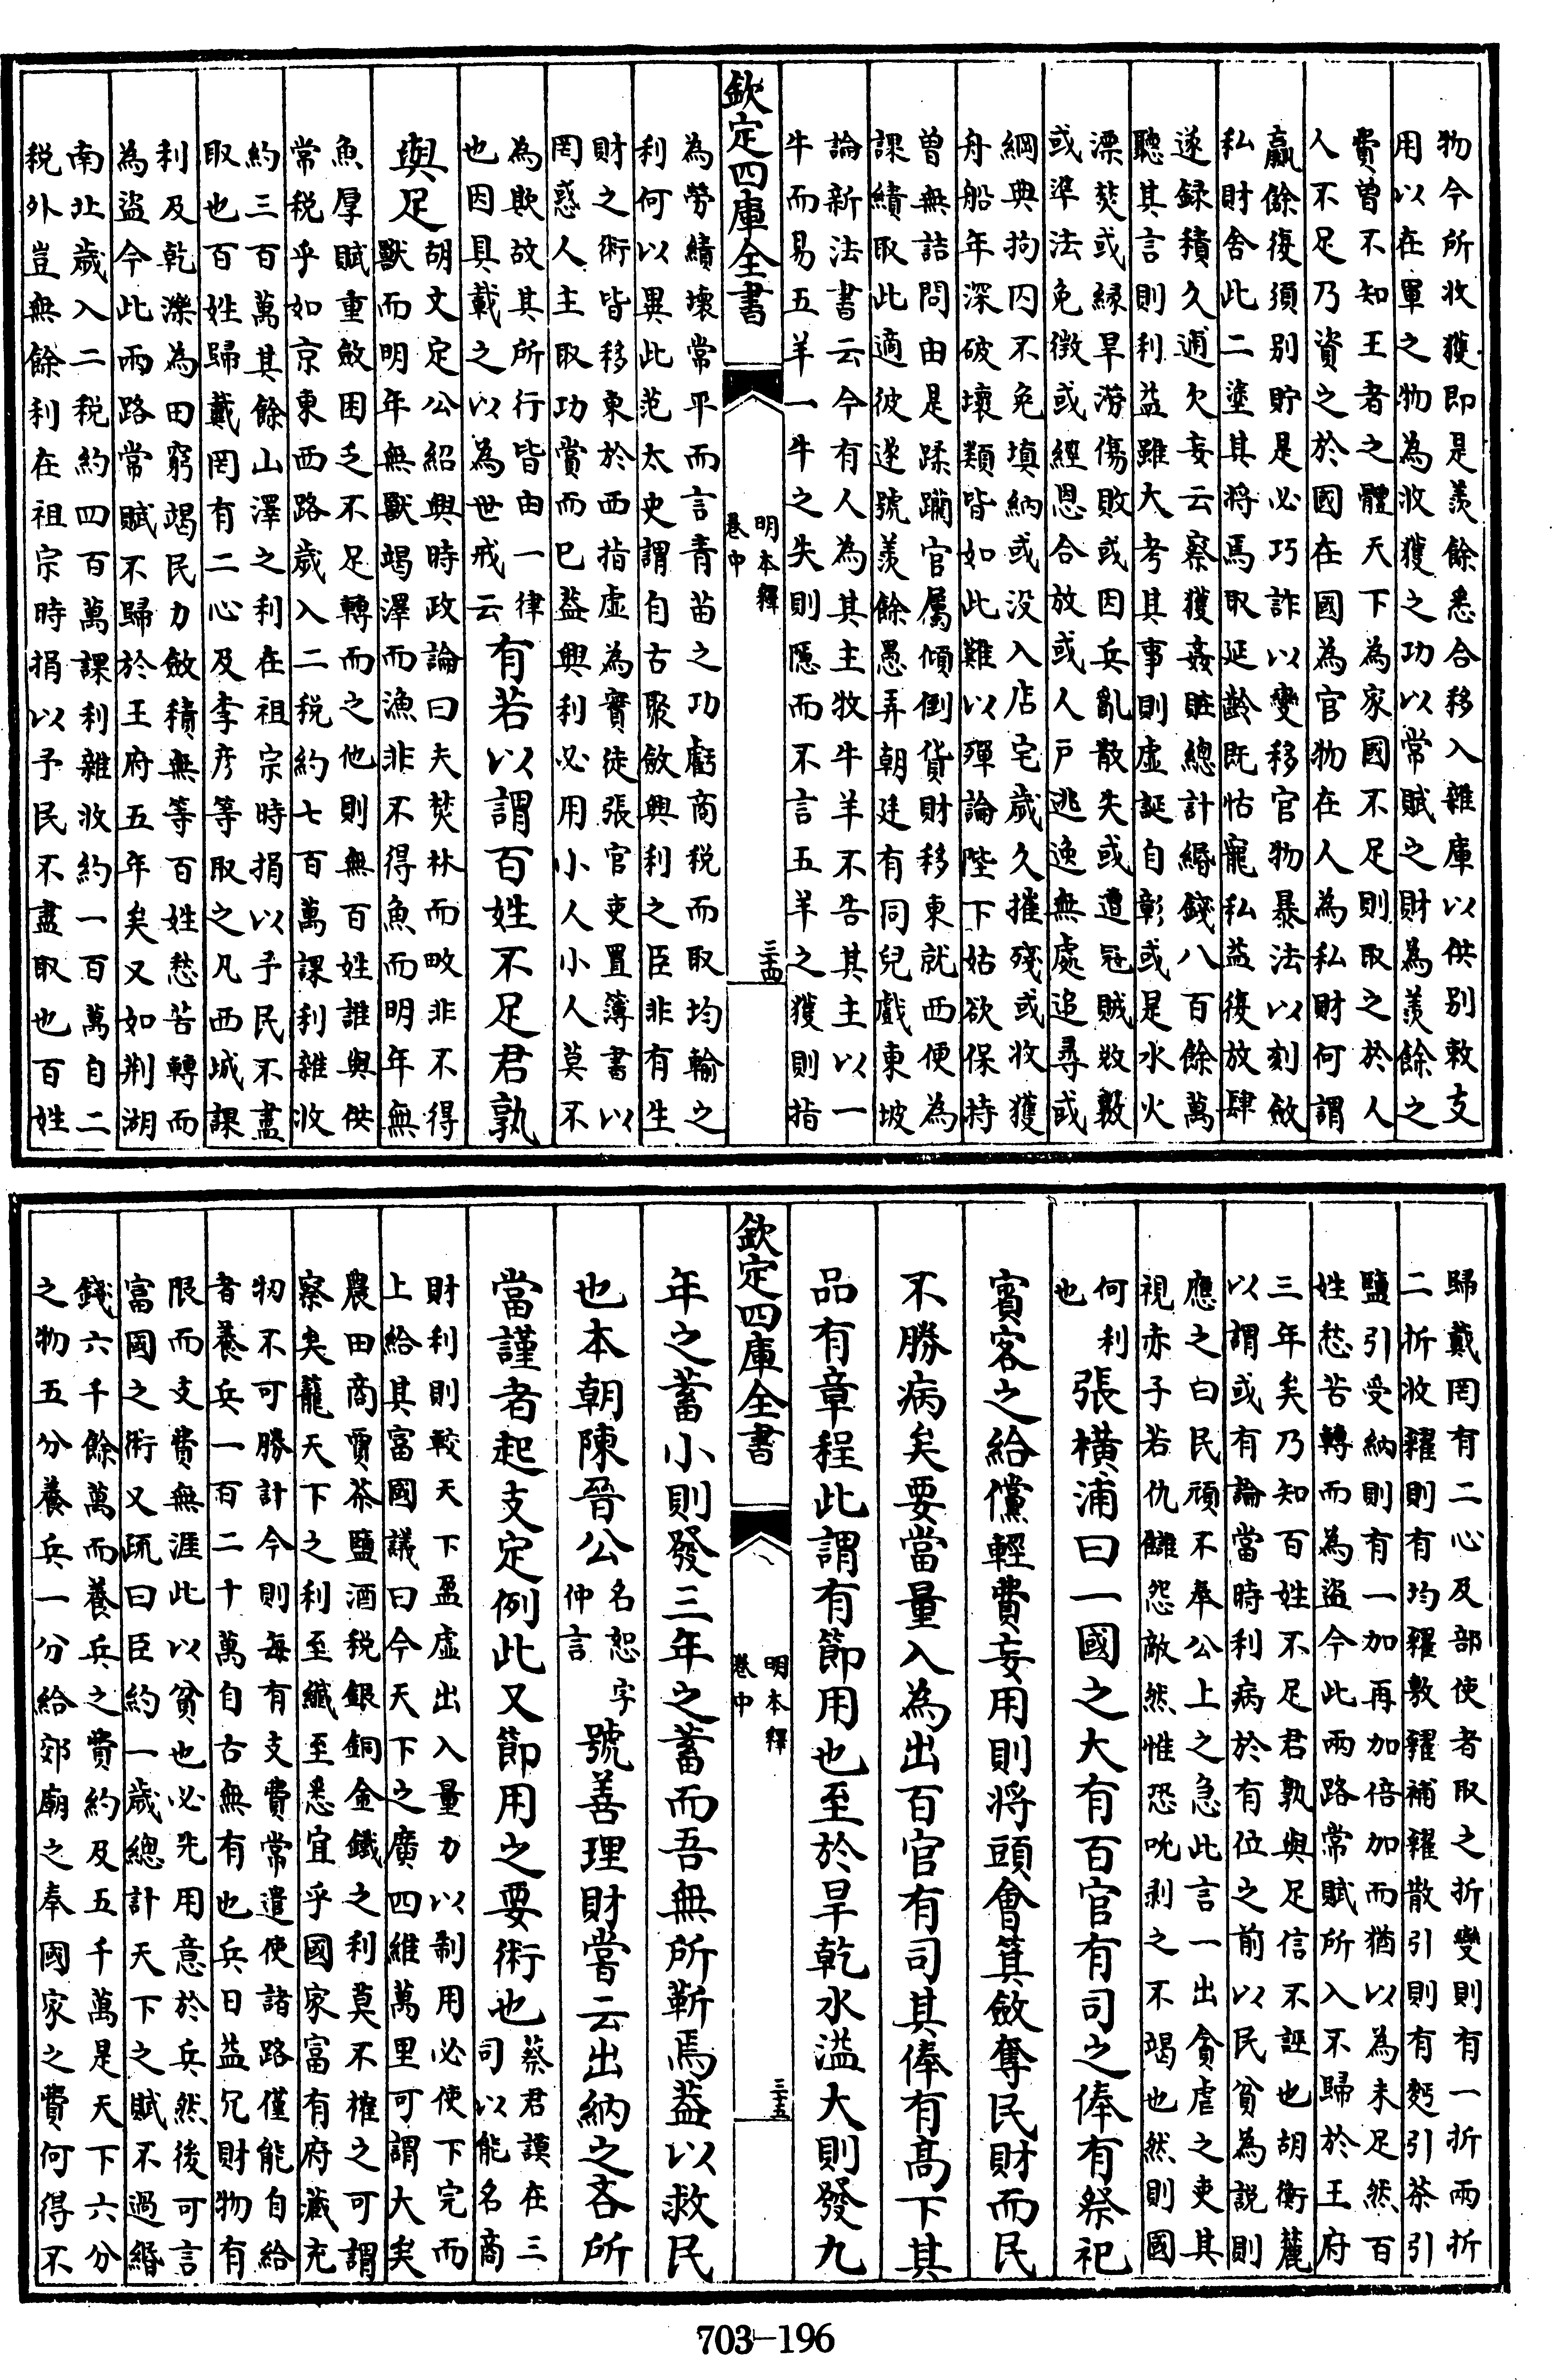 物今所收獲即是羡餘悉合移入雜庫以供别敕支
用以在軍之物為收獲之功以常賦之財為羡餘之
費曽不知王者之體天下為家國不足則取之於人
人不足乃資之於國在國為官物在人為私財何謂
贏餘復須别貯是必巧詐以變移官物暴法以刻斂
私財舍此二塗其將焉取延齡既怙寵私益復放肆
遂録積久逋欠妄云察獲姦贓總計緡錢八百餘萬
聽其言則利益雖大考其事則虛誕自彰或是水火
漂焚或縁旱澇傷敗或因兵亂散失或遭冦賊敚斁
或準法免徴或經恩合放或人戸逃逸無處追尋或
綱典拘囚不免填納或没入店宅歲久摧殘或收獲
舟船年深破壊類皆如此難以殫論陛下姑欲保持
曽無詰問由是蹂躪官屬傾倒貨財移東就西便為
課績取此適彼遂號羡餘愚弄朝廷有同兒戲東坡
論新法書云今有人為其主牧牛羊不告其主以一
牛而易五羊一牛之失則隱而不言五羊之獲則指
欽定四庫全書
明本釋
卷中
三十四
為勞績壊常平而言青苗之功虧商税而取均輸之
利何以異此范太史謂自古聚斂興利之臣非有生
財之術皆移東於西指虛為實徒張官吏置簿書以
罔惑人主取功賞而已益興利必用小人小人莫不
為欺故其所行皆由一律
也因具載之以為世戒云
有若以謂百姓不足君孰
與足
胡文定公紹興時政論曰夫焚林而畋非不得
獸而明年無獸竭澤而漁非不得魚而明年無
魚厚賦重斂困乏不足轉而之他則無百姓誰與供
常税乎如京東西路歲入二税約七百萬課利雜收
約三百萬其餘山澤之利在祖宗時捐以予民不盡
取也百姓歸戴罔有二心及李彦等取之凡西城課
利及乾濼為田窮竭民力斂積無等百姓愁苦轉而
為盜今此兩路常賦不歸於王府五年矣又如荆湖
南北歲入二税約四百萬課利雜收約一百萬自二
税外豈無餘利在祖宗時捐以予民不盡取也百姓
歸戴罔有二心及部使者取之折變則有一折兩折
二折收糴則有均糴敷糴補糴散引則有麫引茶引
鹽引受納則有一加再加倍加而猶以為未足然百
姓愁苦轉而為盜今此兩路常賦所入不歸於王府
三年矣乃知百姓不足君孰與足信不誣也胡衡麓
以謂或有論當時利病於有位之前以民貧為説則
應之曰民頑不奉公上之急此言一出貪虐之吏其
視赤子若仇讎怨敵然惟恐吮剥之不竭也然則國
何利
也
張横浦曰一國之大有百官有司之俸有祭祀
賓客之給儻輕費妄用則将頭會箕斂奪民財而民
不勝病矣要當量入為出百官有司其俸有髙下其
品有章程此謂有節用也至於旱乾水溢大則發九
欽定四庫全書
明本釋
卷中
三十五
年之蓄小則發三年之蓄而吾無所靳焉益以救民
也本朝陳晉公
名恕字
仲言
號善理財嘗云出納之吝所
當謹者起支定例此又節用之要術也
蔡君謨在三
司以能名商
財利則較天下盈虛出入量力以制用必使下完而
上給其富國議曰今天下之廣四維萬里可謂大矣
農田商賈茶鹽酒税銀銅金鐵之利莫不榷之可謂
察矣籠天下之利至纖至悉宜乎國家富有府藏充
牣不可勝計今則每有支費常遣使諸路僅能自給
者養兵一百二十萬自古無有也兵日益冗財物有
限而支費無涯此以貧也必先用意於兵然後可言
富國之術又疏曰臣約一歲總計天下之賦不過緡
錢六千餘萬而養兵之費約及五千萬是天下六分
之物五分養兵一分給郊廟之奉國家之費何得不
703-196